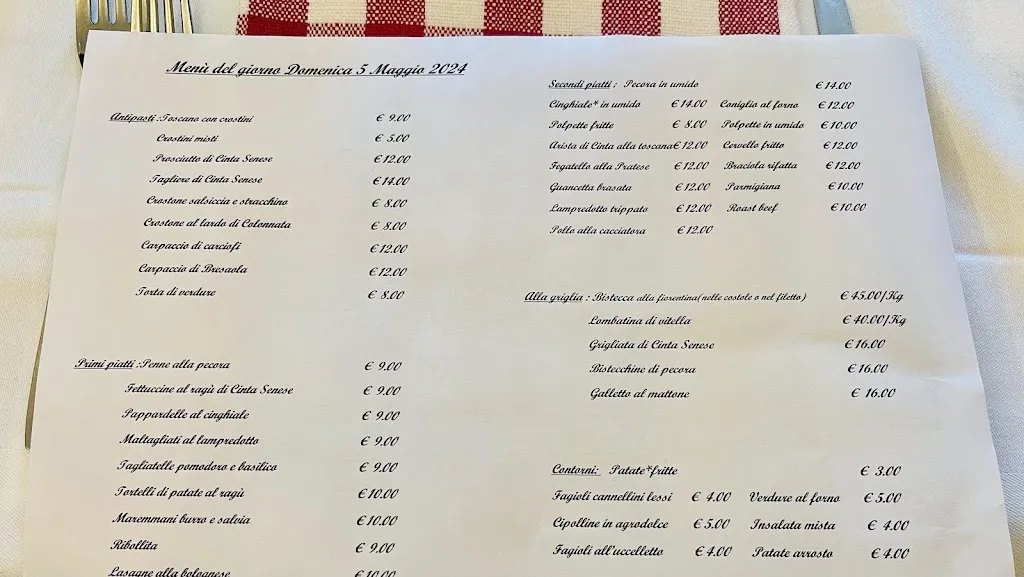 Menù del giorno Domenica 5 Maggio 2024
Antipasti :Toscano con crostini € 9.00
Crostini misti € 5.00
Prosciutto di Cinta Senese €12.00
Tagliere di Cinta Senese €14.00
Crostone salsiccia e stracchino € 8.00
Crostone al lardo di Colonnata € 8.00
Carpaccio di carciofi €12.00
Carpaccio di Bresaola €12.00
Torta di verdure € 8.00
Primi piatti :Penne alla pecora € 9.00
Fettuccine al ragù di Cinta Senese € 9.00
Pappardelle al cinghiale € 9.00
Maltagliati al lampredotto € 9.00
Tagliatelle pomodoro e basilico € 9.00
Tortelli di patate al ragù €10.00
Maremmani burro e salvia €10.00
Ribollita € 9.00
Lasagne alla bolognese €10.00
Secondi piatti : Pecora in umido €14.00
Cinghiale* in umido €14.00 Coniglio al forno €12.00
Polpette fritte € 8.00 Polpette in umido €10.00
Arista di Cinta alla toscana€12.00 Cervello fritto €12.00
Fegatello alla Pratese €12.00 Braciola rifatta €12.00
Guancetta brasata €12.00 Parmigiana €10.00
Lampredotto trippato €12.00 Roast beef €10.00
Pollo alla cacciatora €12.00
Alla griglia : Bistecca alla fiorentina(nelle costole o nel filetto) €45.00/Kg
Lombatina di vitella €40.00/Kg
Grigliata di Cinta Senese €16.00
Bistecchine di pecora €16.00
Galletto al mattone € 16.00
Contorni: Patate*fritte € 3.00
Fagioli cannellini lessi € 4.00 Verdure al forno €5.00
Cipolline in agrodolce €5.00 Insalata mista € 4.00
Fagioli all'uccelletto €4.00 Patate arrosto €4.00